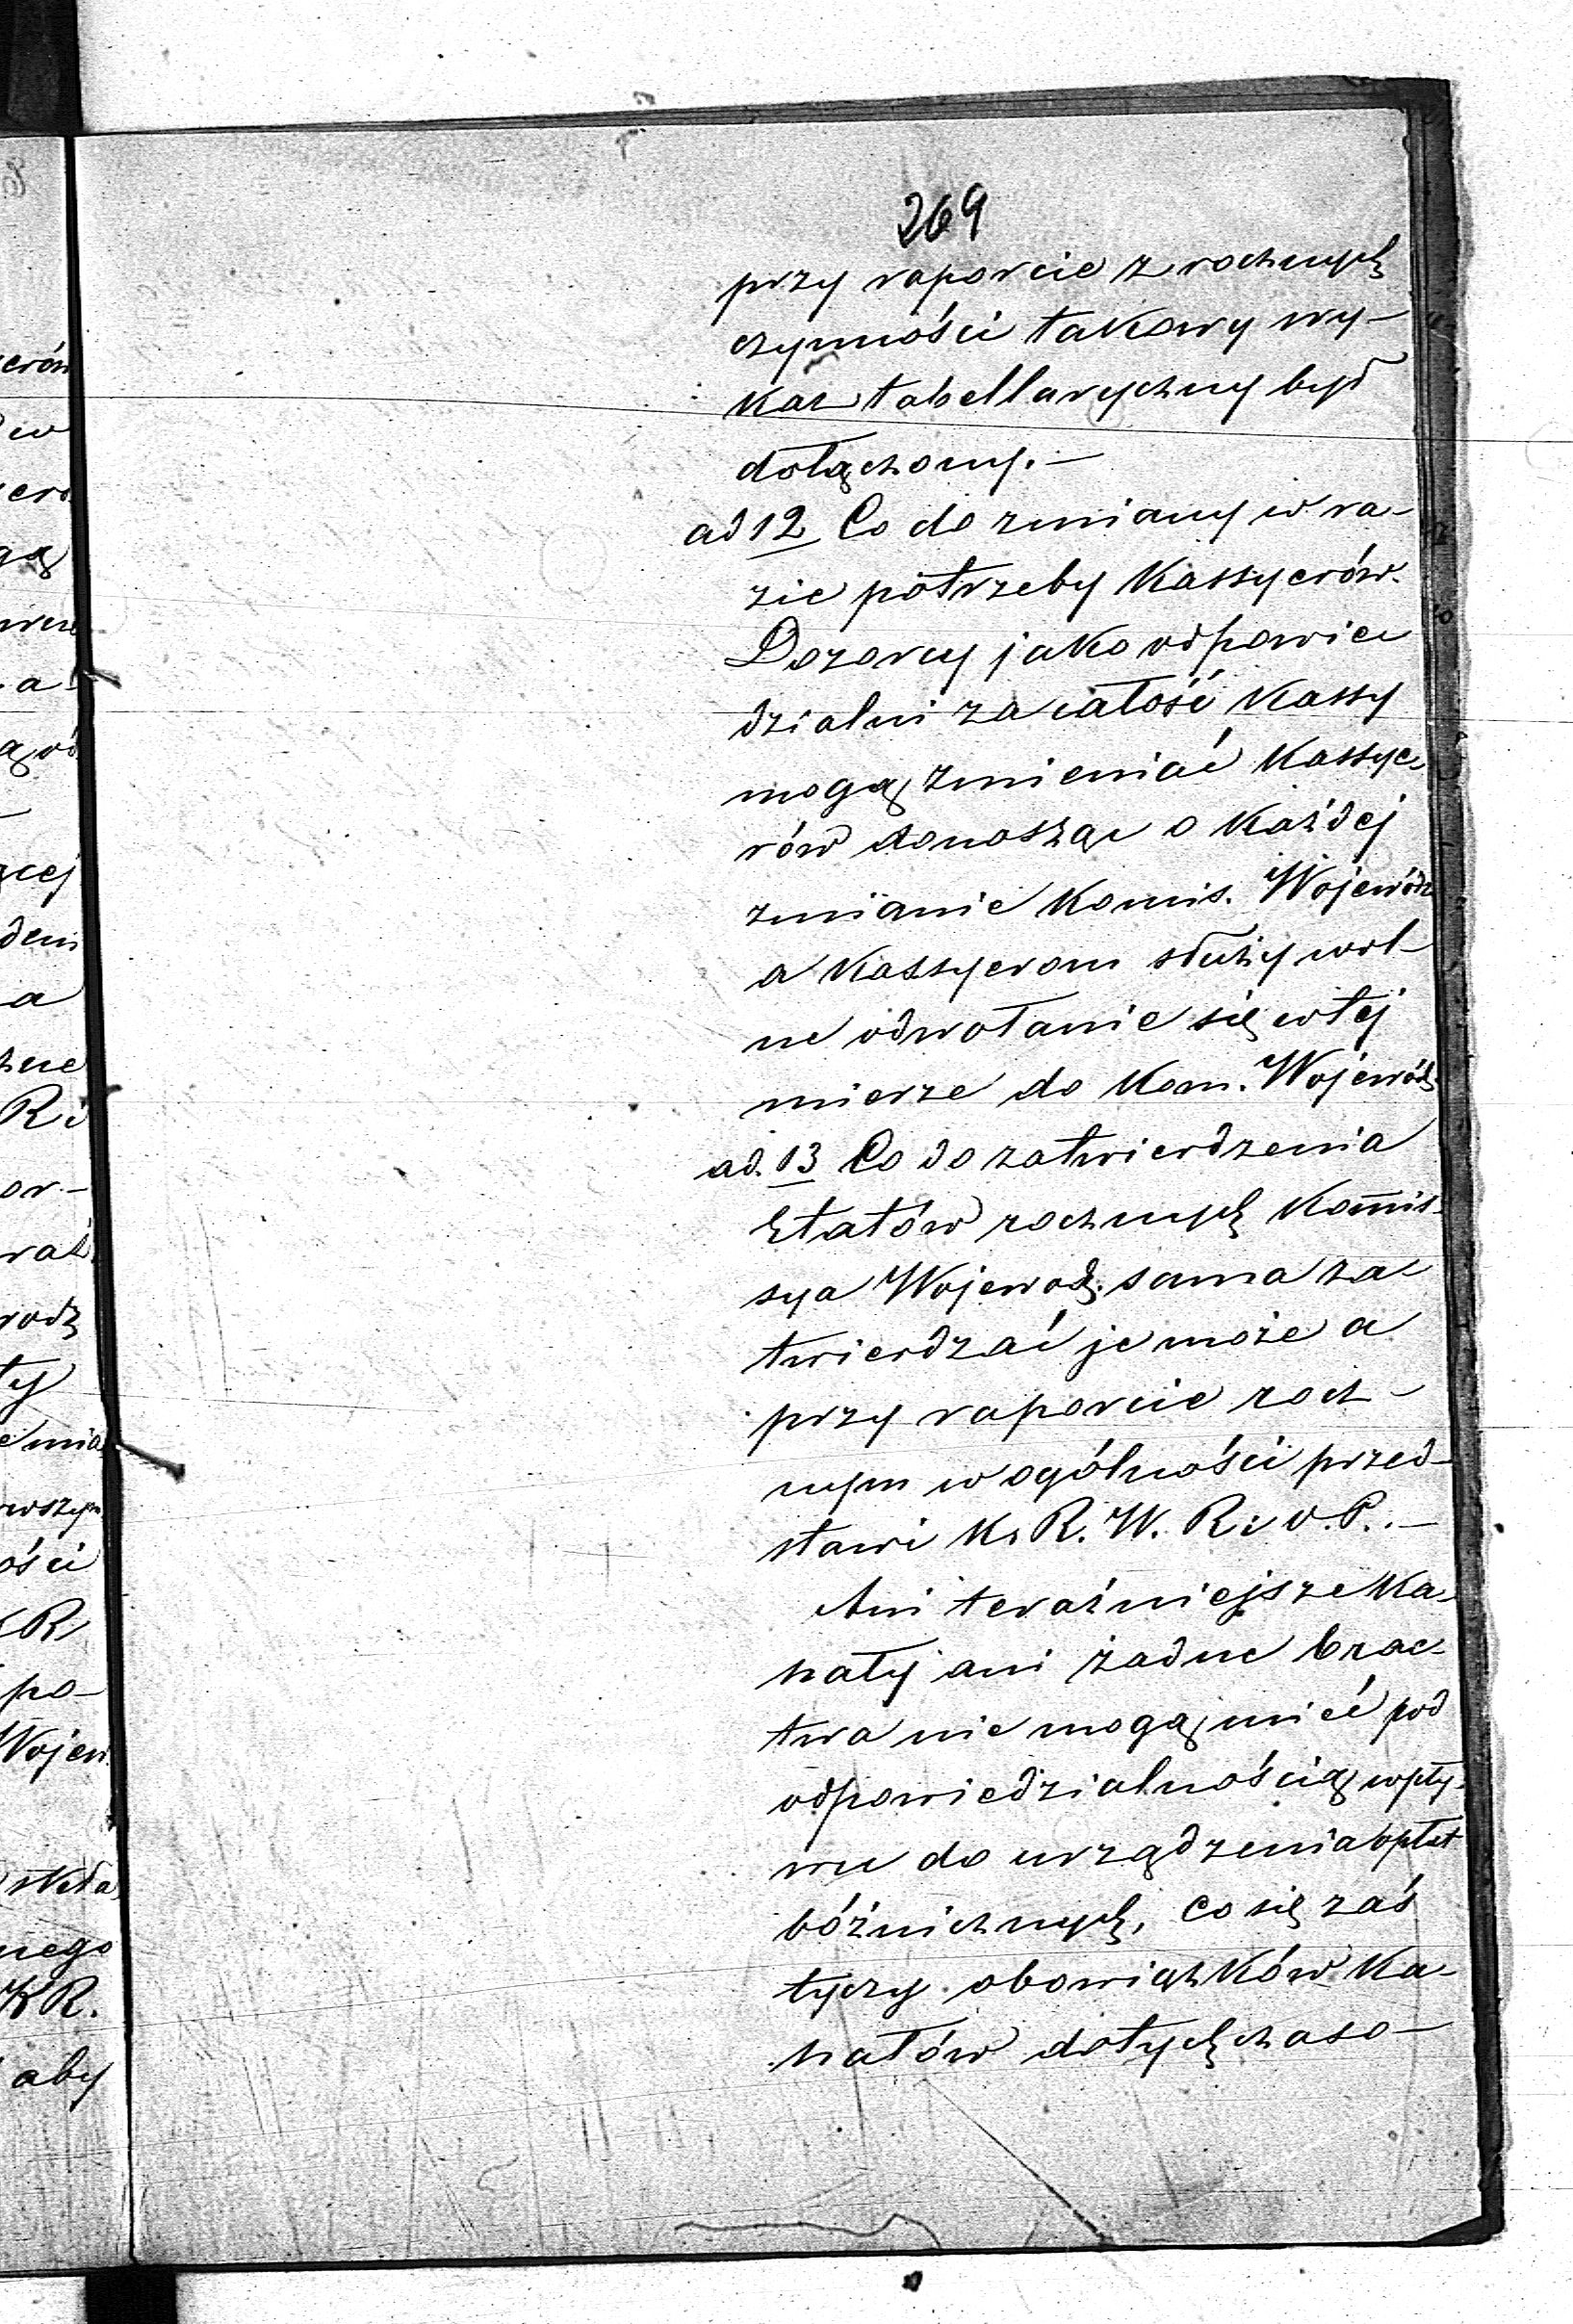 269
przy raporcie z rocznych
czynności takowy wy-
kaz tabellaryczny był
dołączony.-
ad 12 Co do zmiany w ra-
zie potrzeby Kassyerów.
Dozorcy jako odpowie
dzialni za całość Kassy
mogą zmieniać Kassye-
rów donosząc o Każdej
zmianie Komis. Wojewódz
a Kassyerom służy wol-
ne odwołanie się w tej
mierze do Kom. Wojewódz
ad. 13 Co do zatwierdzenia
Etatów rocznych Kommis-
sya Wojewodz. sama za-
twierdzać je może a
przy raporcie rocz-
nym w ogólności przed-
stawi K. R. W. R. i O. P..-
Ani teraźniejsze Ka-
hały ani żadne brac-
twa nie mogą mieć pod
odpowiedzialnością wpły-
wu do urządzenia opłat
bóżnicznych, co się zaś
tyczy obowiązków Ka-
hałów dotychczaso-
erów
w
gą
a
ącej
dem
a
R i
or-
wszym
ości
KR
po-
Wojew.
nego
KR.
aby